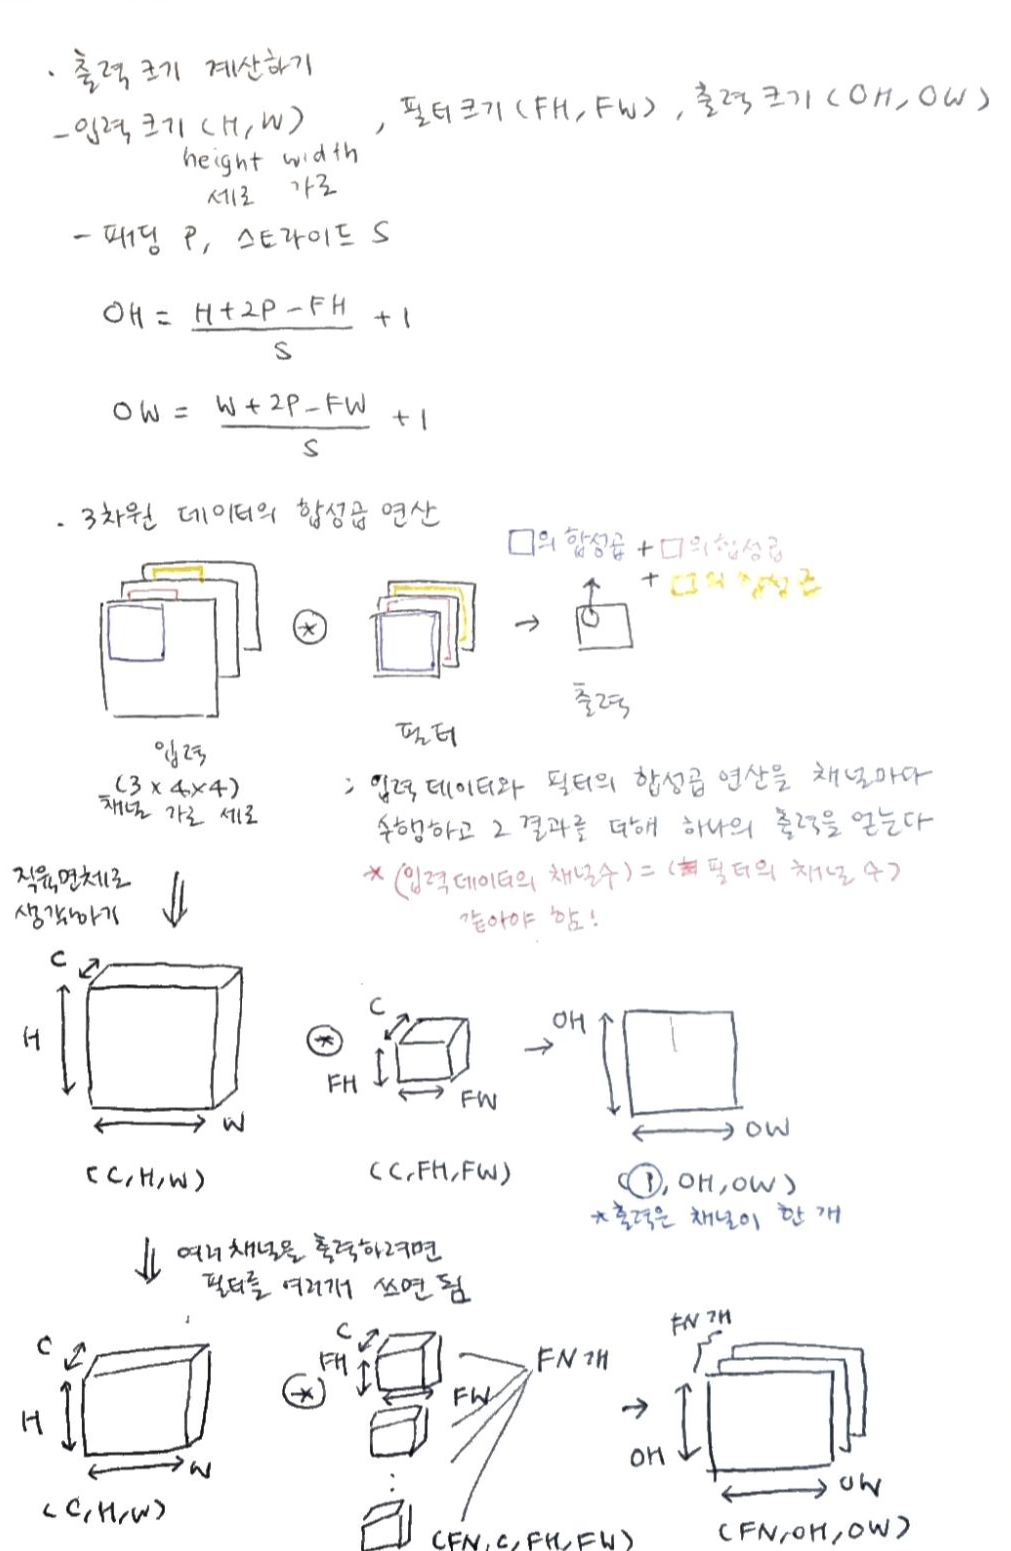 · 출력 크기 계산하기
- 입력 크기 (H, W) , 필터 크기 (FH, FW) , 출력 크기 (OH, OW)
height width
세로 가로
- 패딩 P, 스트라이드 S
OH = H+2P-FH / S + 1
OW = W+2P-FW / S + 1
· 3차원 데이터의 합성곱 연산
□의 합성곱 + □의 합성곱
+ □의 합성곱
⊛ →
입력 필터 출력
(3×4×4)
채널 가로 세로
: 입력 데이터와 필터의 합성곱 연산을 채널마다
수행하고 그 결과를 더해 하나의 출력을 얻는다
* (입력 데이터의 채널 수) = (필터의 채널 수)
같아야 함!
직육면체로
생각하기 ⇓
C
H
W
(C, H, W)
⊛
C
FH
FW
(C, FH, FW)
→
OH
OW
(1, OH, OW)
* 출력은 채널이 한 개
⇓ 여러 채널을 출력하려면
필터를 여러개 쓰면 됨
C
H
W
(C, H, W)
⊛
C
FH
FW
FN개
:
(FN, C, FH, FW)
→
FN개
OH
OW
(FN, OH, OW)